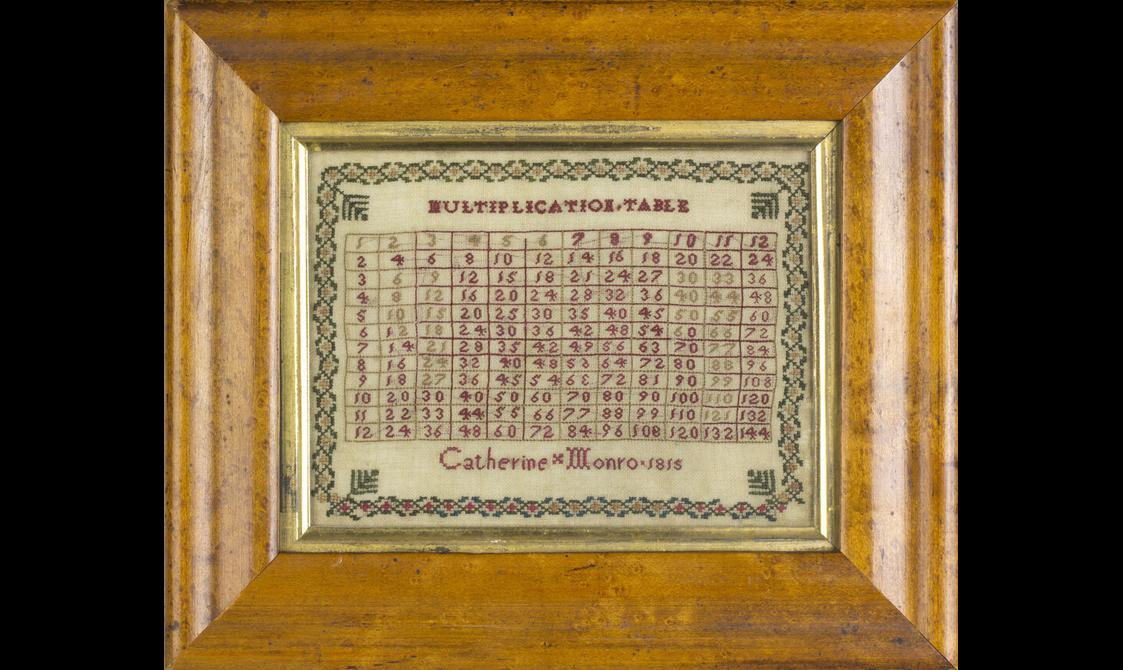 MULTIPLICATION·TABLE
1 2 3 4 5 6 7 8 9 10 11 12
2 4 6 8 10 12 14 16 18 20 22 24
3 6 9 12 15 18 21 24 27 30 33 36
4 8 12 16 20 24 28 32 36 40 44 48
5 10 15 20 25 30 35 40 45 50 55 60
6 12 18 24 30 36 42 48 54 60 66 72
7 14 21 28 35 42 49 56 63 70 77 84
8 16 24 32 40 48 56 64 72 80 88 96
9 18 27 36 45 54 63 72 81 90 99 108
10 20 30 40 50 60 70 80 90 100 110 120
11 22 33 44 55 66 77 88 99 110 121 132
12 24 36 48 60 72 84 96 108 120 132 144
Catherine × Monro · 1815